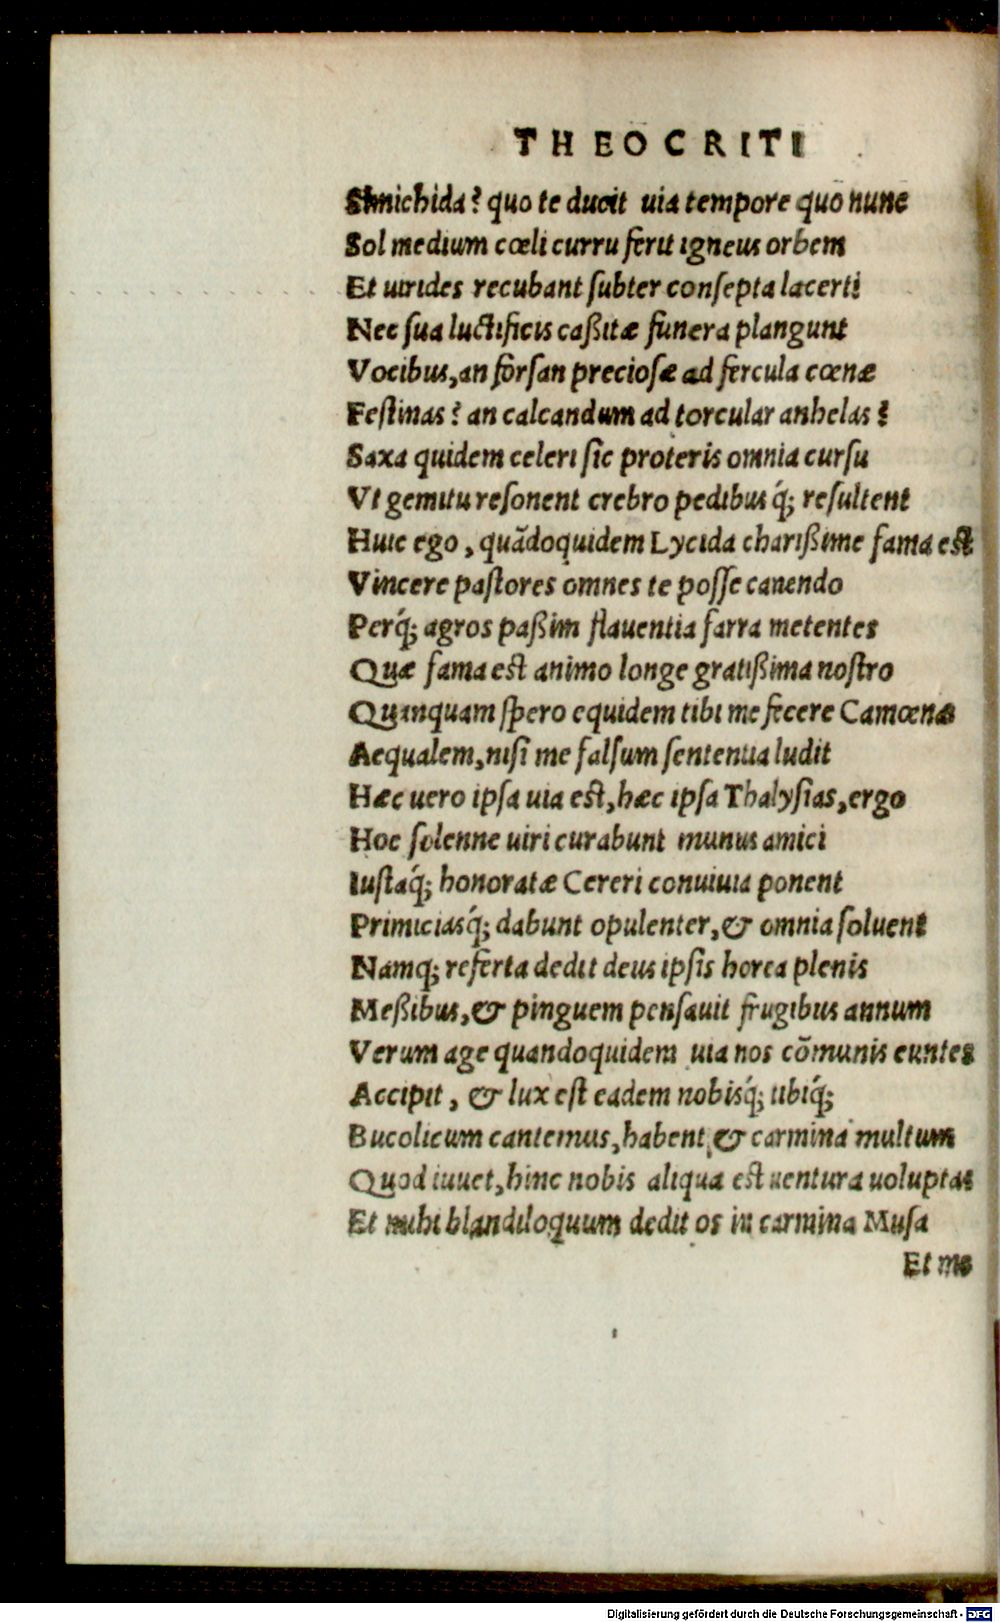 THEOCRITI
Simichida? quo te ducit uia tempore quo nunc
Sol medium cœli curru ferit igneus orbem
Et uirides recubant ſubter conſepta lacerti
Nec ſua luctificis caßitæ funera plangunt
Vocibus, an forſan precioſæ ad fercula cœnæ
Feſtinas? an calcandum ad torcular anhelas?
Saxa quidem celeri ſic proteris omnia curſu
Vt gemitu reſonent crebro pedibus q́; reſultent
Huic ego, quādoquidem Lycida charißime fama est
Vincere paſtores omnes te poſſe canendo
Perq́; agros paßim flauentia farra metentes
Quæ fama est animo longe gratißima noſtro
Quanquam ſpero equidem tibi me fecere Camœnas
Aequalem, niſi me falſum ſententia ludit
Hæc uero ipſa uia est, hæc ipſa Thalyſias, ergo
Hoc ſolenne uiri curabunt munus amici
Iuſtaq́; honoratæ Cereri conuiuia ponent
Primiciasq́; dabunt opulenter, & omnia ſoluent
Namq; referta dedit deus ipſis horea plenis
Meßibus, & pinguem penſauit frugibus annum
Verum age quandoquidem uia nos cōmunis euntes
Accipit, & lux est eadem nobisq́; tibiq́;
Bucolicum cantemus, habent & carmina multum
Quod iuuet, hinc nobis aliqua est uentura uoluptas
Et mihi blandiloquum dedit os in carmina Muſa
Et me
Digitalisierung gefördert durch die Deutsche Forschungsgemeinschaft - DFG